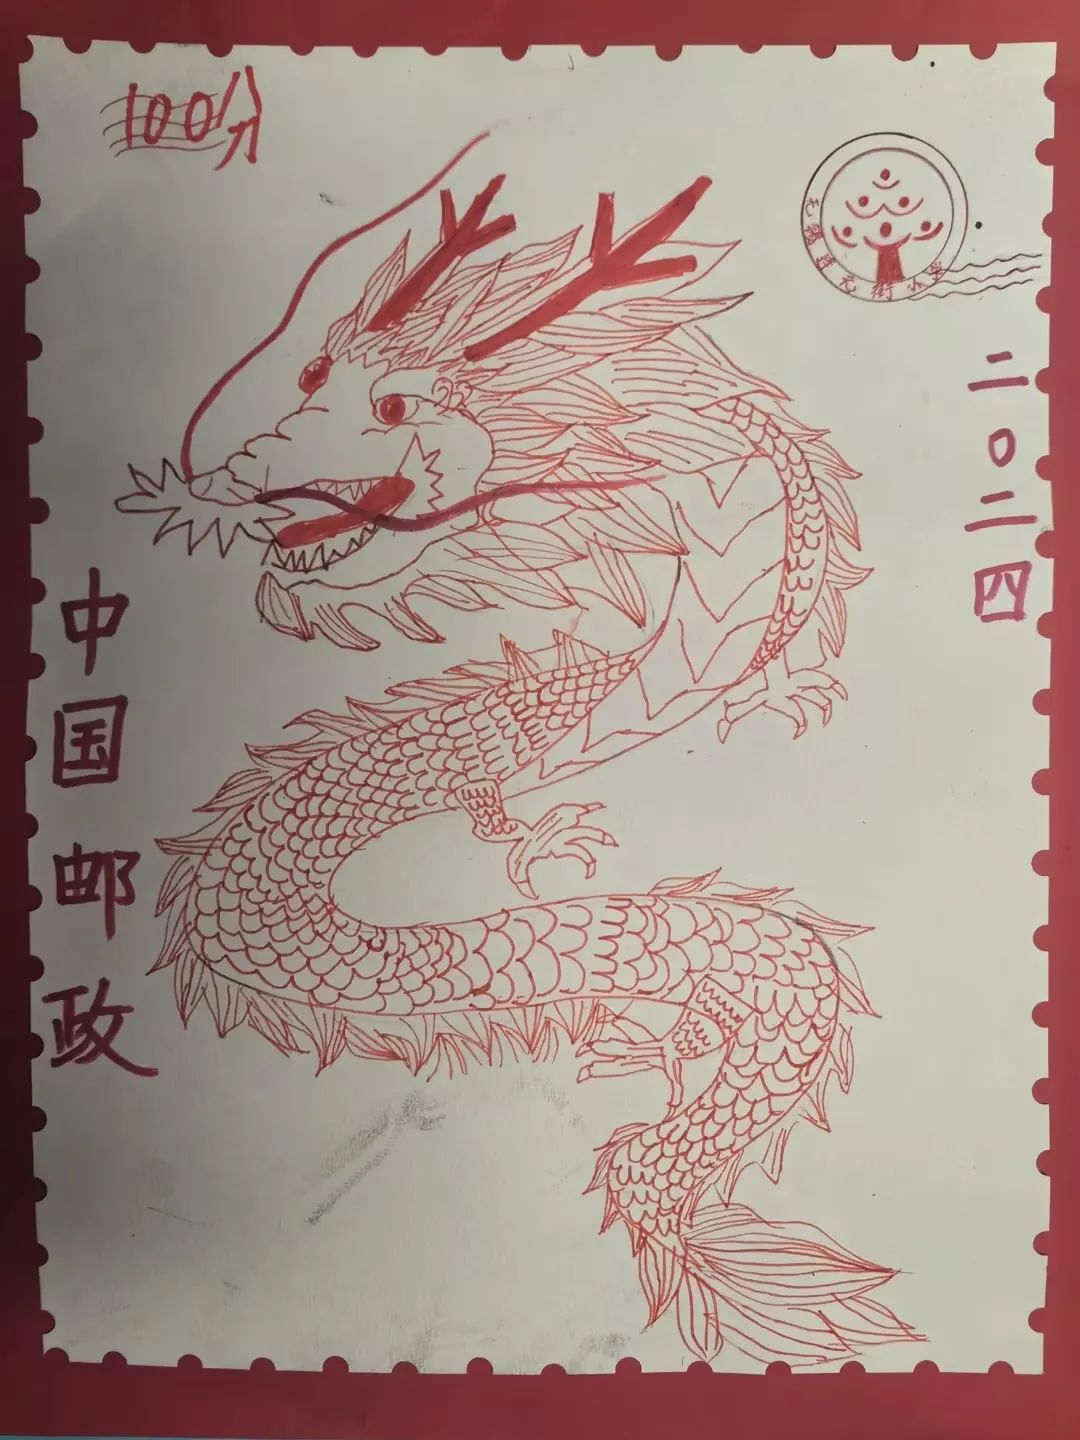 100分
二〇二四
中国邮政